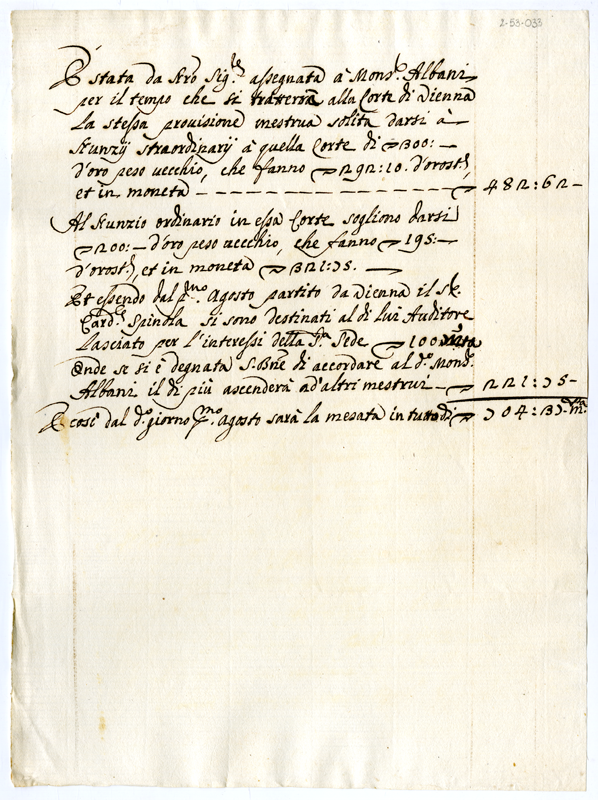 2-53-033
È stata da Nro Sig.re assegnata à Mons.r Albani
per il tempo che si tratterrà alla Corte di Vienna
la stessa provisione mestrua solita darsi à
Nunzÿ straordinarÿ à quella Corte di 300:—
d'oro peso vecchio, che fanno 292:10. d'oro st.e,
et in moneta — — — — — — — — 482:62—
Al Nunzio ordinario in essa Corte sogliono darsi
200:— d'oro peso vecchio, che fanno 195:—
d'oro st.e, et in moneta 321:75. —
Et essendo dal p.mo Agosto partito da Vienna il S.r
Card.e Spinola si sono destinati al di lui Auditore
lasciato per l'interessi della S.ta Sede 100 m.ta
Onde se si è degnata S. Bne di accordare al d.o Mons.r
Albani il di più ascenderà ad'altri mestrui — 221:75—
E così dal d.o giorno p.mo Agosto sarà la mesata in tutto di 704:37— m.ta